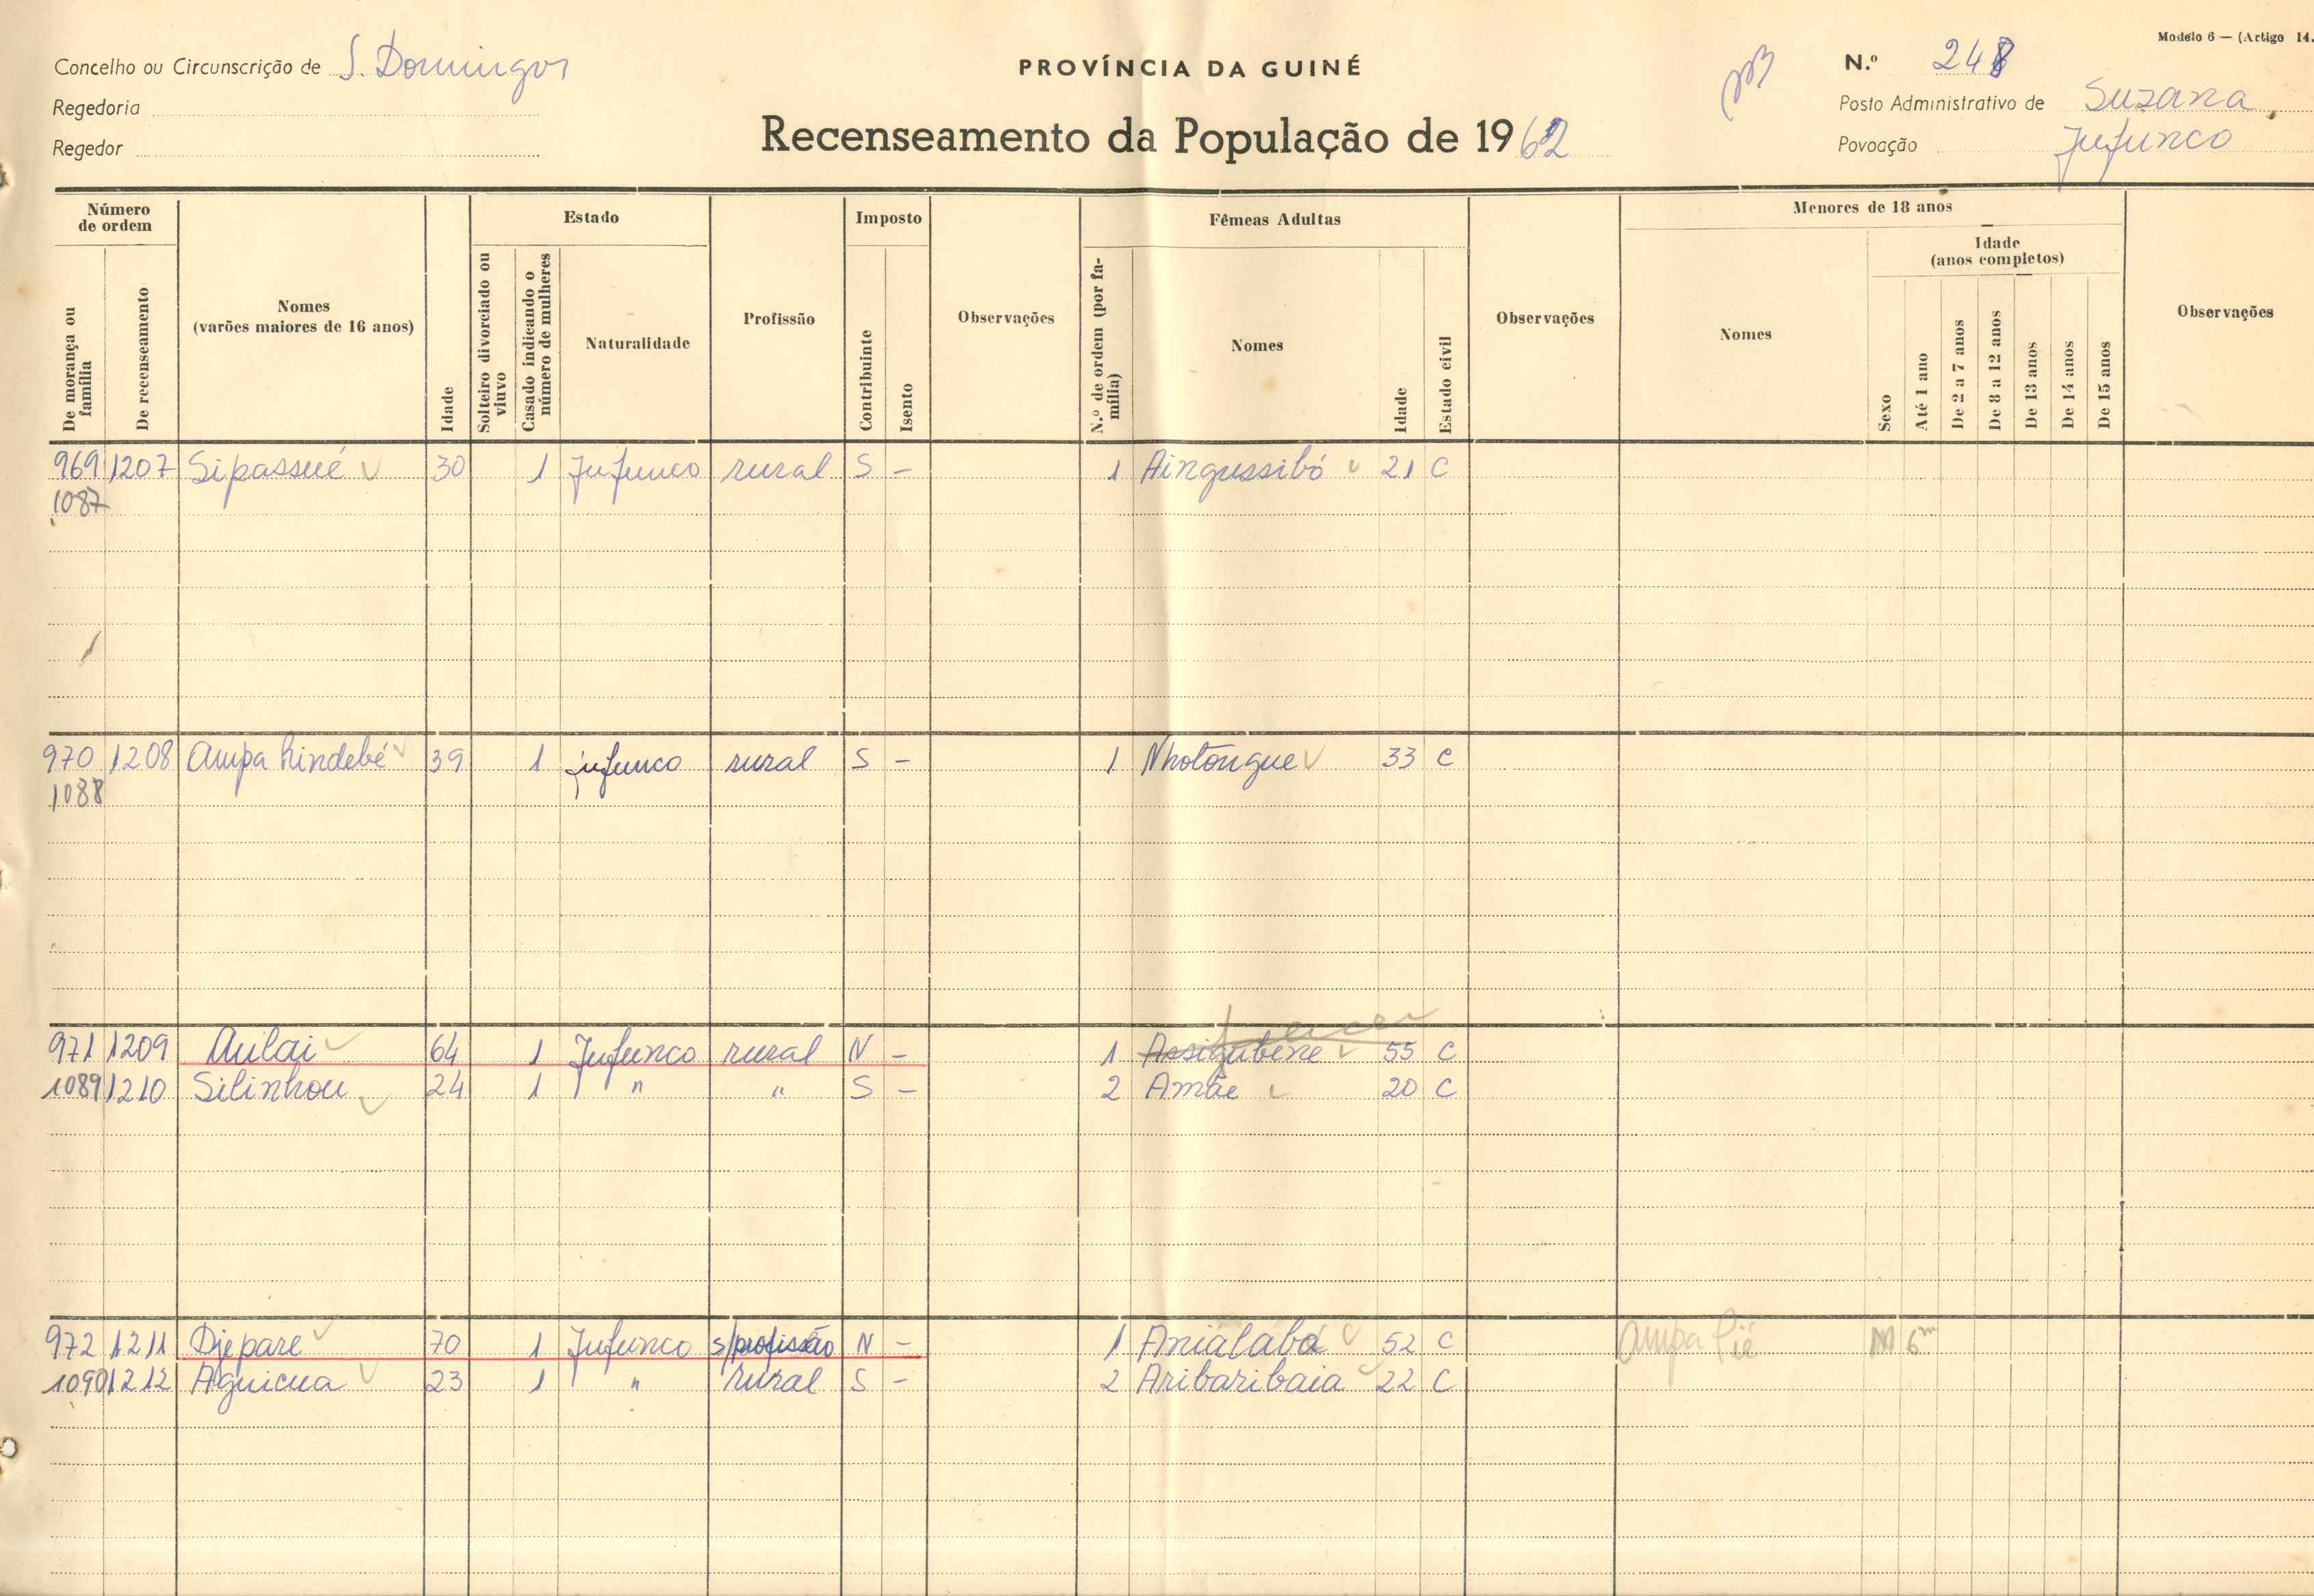 Modelo 6 — (Artigo 14.
Concelho ou Circunscrição de S. Domingos
PROVÍNCIA DA GUINÉ
N.º 248
Regedoria
Posto Administrativo de Suzana
Regedor
Recenseamento da População de 1962
Povoação Jufunco
Número de ordem
De morança ou família
De recenseamento
Nomes
(varões maiores de 16 anos)
Idade
Estado
Solteiro divorciado ou viuvo
Casado indicando o número de mulheres
Naturalidade
Profissão
Imposto
Contribuinte
Isento
Observações
Fêmeas Adultas
N.º de ordem (por família)
Nomes
Idade
Estado civil
Observações
Menores de 18 anos
Nomes
Sexo
Idade
(anos completos)
Até 1 ano
De 2 a 7 anos
De 8 a 12 anos
De 13 anos
De 14 anos
De 15 anos
Observações
969 1207 Sipassué 30 1 Jufunco rural S - 1 Aingussibó 21 C
1087
970 1208 Ampa hindebé 39 1 jufunco rural S - 1 Nhotongue 33 C
1088
971 1209 Aulai 64 1 Jufunco rural N - 1 Assigubene 55 C
1089 1210 Silinhou 24 1 " " S - 2 Amãe 20 C
972 1211 Djepare 70 1 Jufunco s/profissão N - 1 Anialabá 52 C Ampa Pié M 6m
1090 1212 Aguicua 23 1 " rural S - 2 Aribaribaia 22 C